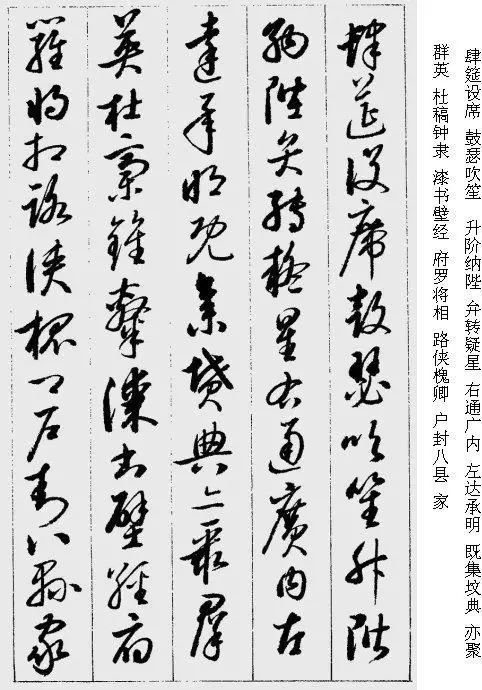 肆筵设席 鼓瑟吹笙 升阶纳陛 弁转疑星 右通广内 左达承明 既集坟典 亦聚
群英 杜稿钟隶 漆书壁经 府罗将相 路侠槐卿 户封八县 家
肆筵設席鼓瑟吹笙升階
納陛弁轉疑星右通廣內左
達承明既集墳典亦聚羣
英杜稾鍾隸漆書壁經府
羅將相路俠槐卿戶封八縣家